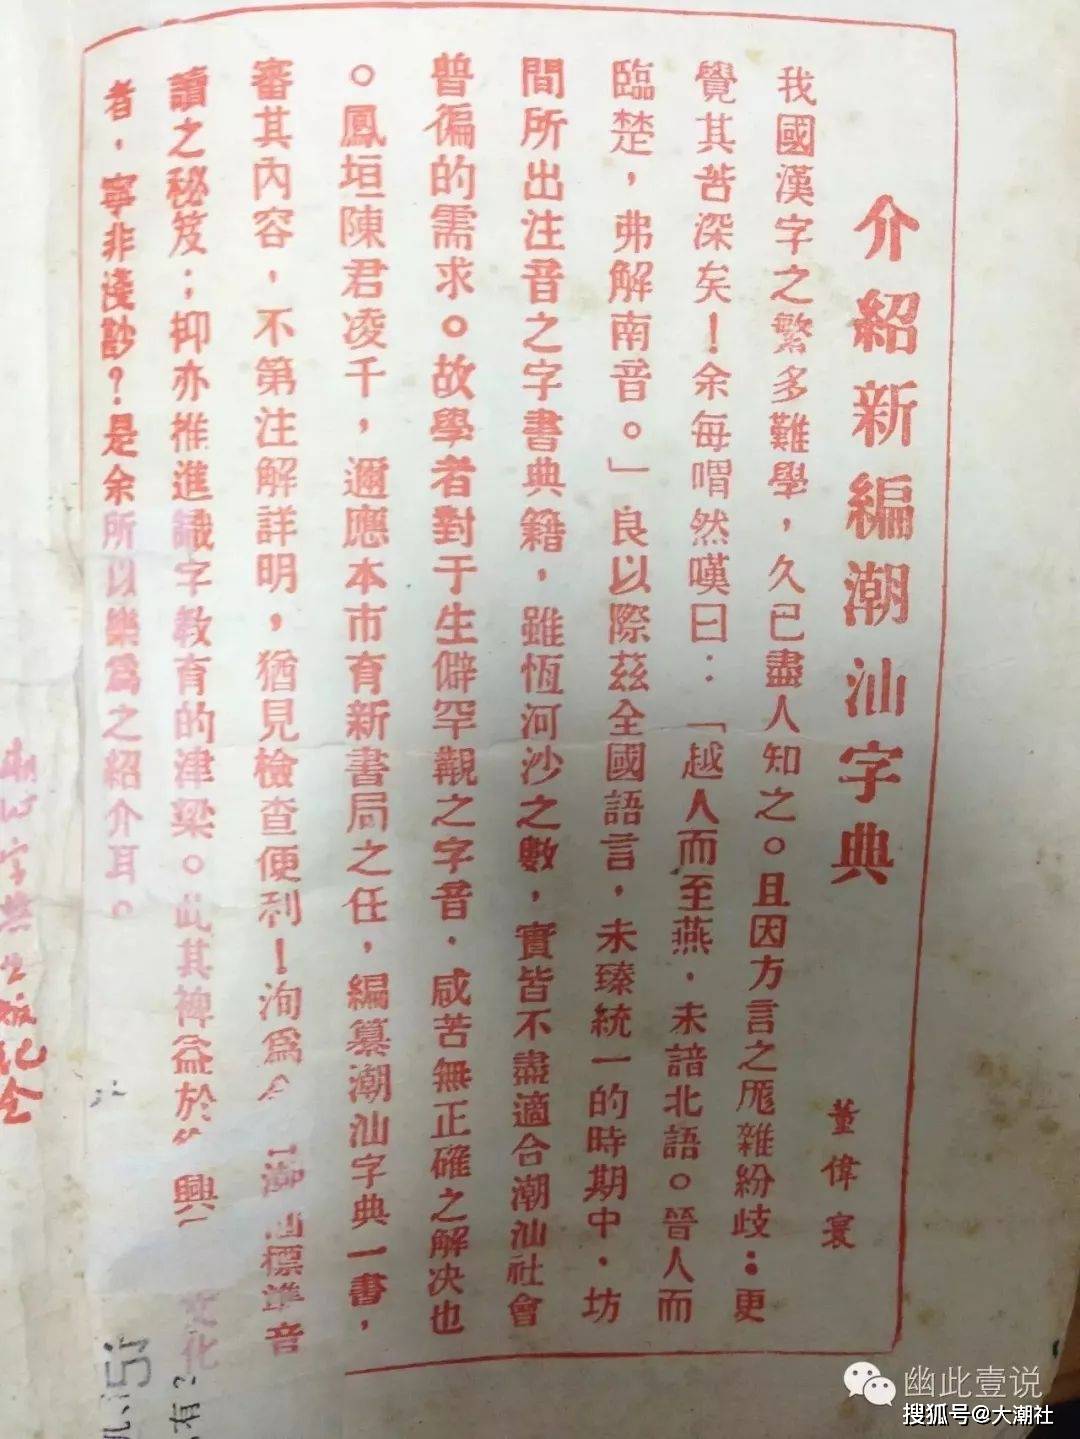 介紹新編潮汕字典
董偉寰
我國漢字之繁多難學，久已盡人知之。且因方言之厖雜紛歧：更
覺其苦深矣！余每喟然嘆曰：「越人而至燕，未諳北語。晉人而
臨楚，弗解南音。」良以際茲全國語言，未臻統一的時期中．坊
間所出注音之字書典籍，雖恆河沙之數，實皆不盡適合潮汕社會
普徧的需求。故學者對于生僻罕觀之字音．咸苦無正確之解决也
。鳳垣陳君凌千，邇應本市育新書局之任，編纂潮汕字典一書，
審其內容，不第注解詳明，猶見檢查便利！洵爲 潮汕標準音
讀之秘笈；抑亦推進識字教育的津梁。此其裨益於 興 文化
者．寧非淺尠？是余所以樂爲之紹介耳。
字典 紀念
有
幽此壹说
搜狐号@大潮社